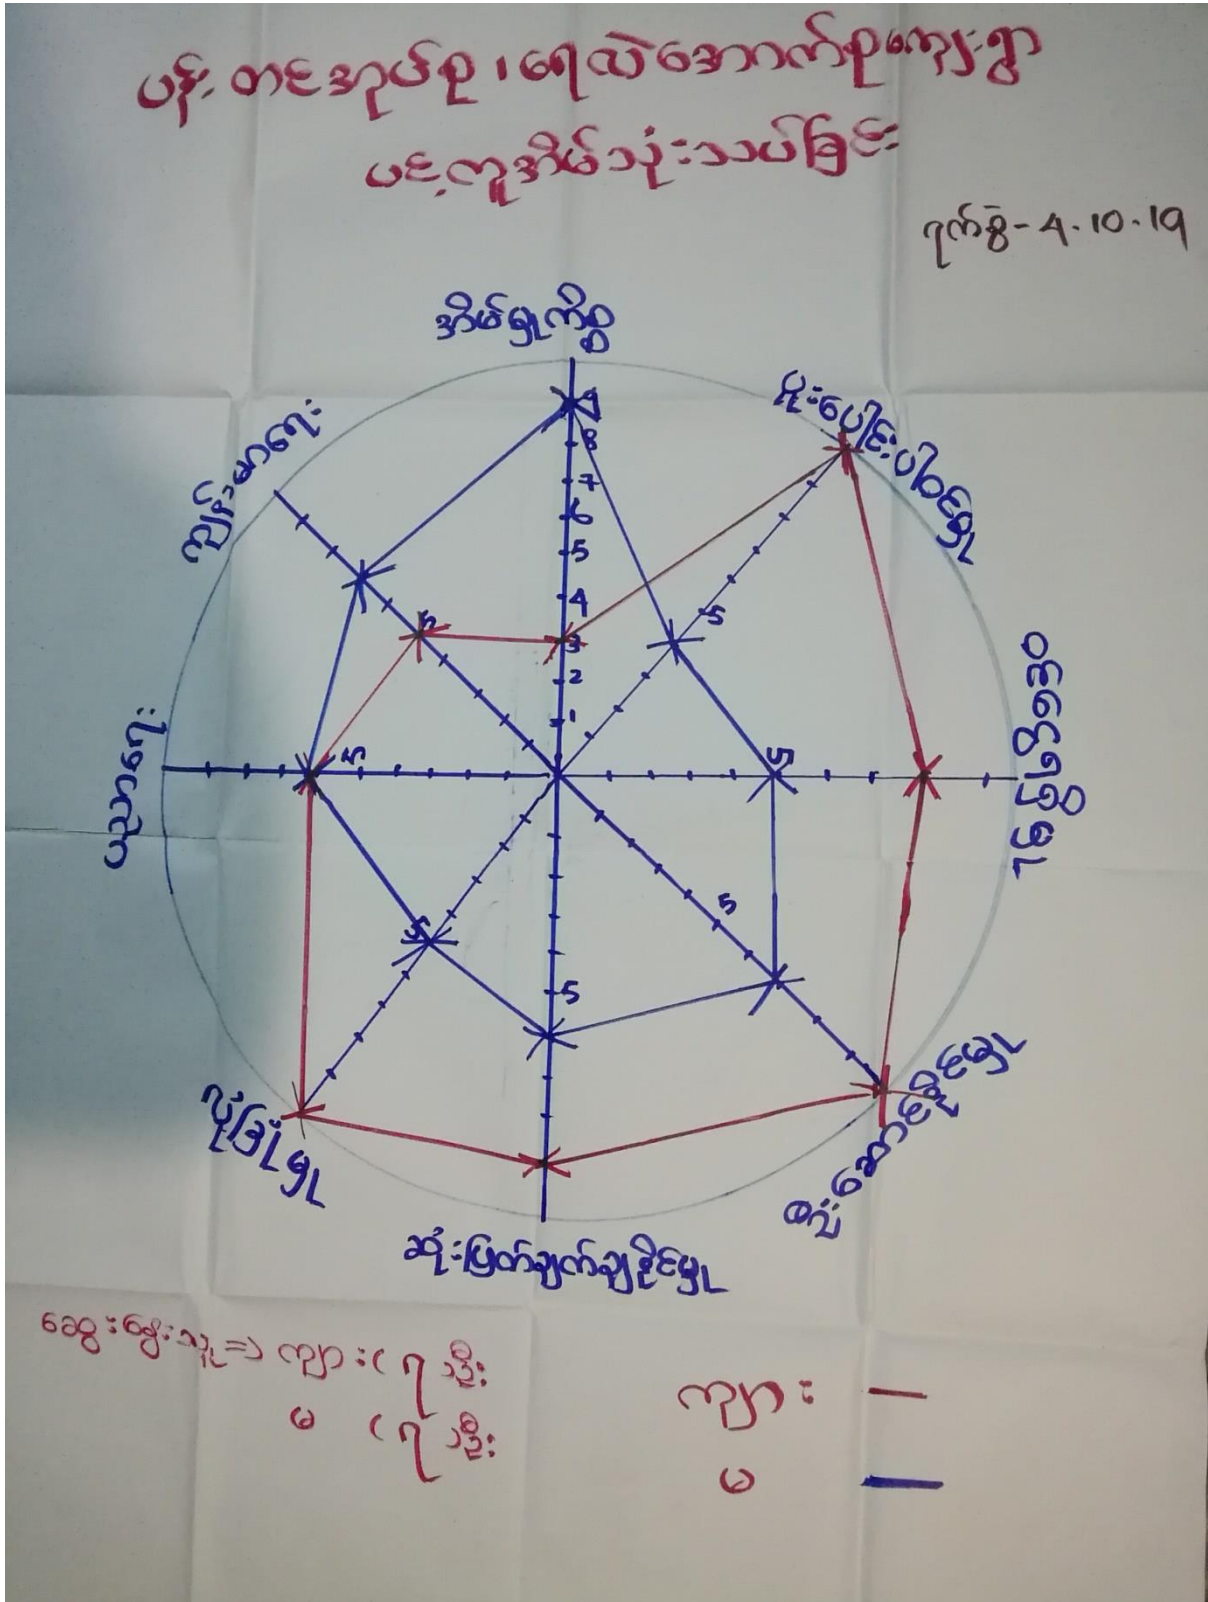 ပန်းတင်အုပ်စု၊ ရေလဲအောက်စုကျေးရွာ
ပင့်ကူအိမ်သုံးသပ်ခြင်း
ရက်စွဲ - 4.10.19
အိမ်မှုကိစ္စ
ပူးပေါင်းပါဝင်မှု
ဝင်ငွေရရှိမှု
ဦးဆောင်နိုင်မှု
ဆုံးဖြတ်ချက်ချနိုင်မှု
လုံခြုံမှု
ပညာရေး
ကျန်းမာရေး
9
8
7
6
5
4
3
2
1
5
5
5
5
5
5
5
ဆွေးနွေးသူ => ကျား ( ၇ ) ဦး
မ ( ၇ ) ဦး
ကျား —
မ —